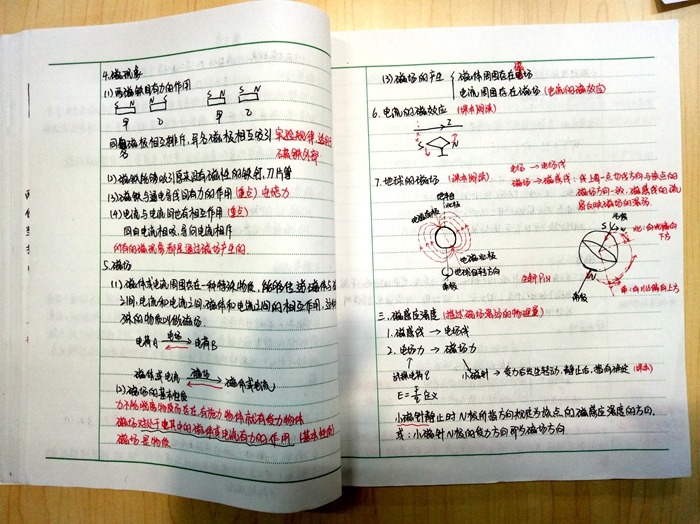 4.磁现象
(1)两磁铁间有力的作用
S N N S N S N
甲 乙 甲 乙
同名磁极相互排斥,异名磁极相互吸引 实验规律,适用于
磁铁外部
(2)磁铁能够吸引原来没有磁性的铁钉、刀片等
(3)磁铁与通电导线间有力的作用(重点)
(4)电流与电流间也有相互作用(重点)
同向电流相吸,异向电流相斥
所有的磁现象都是通过磁场产生的.
5.磁场
(1)磁体或电流周围存在一种特殊物质,能够传递磁体
之间、电流和电流之间、磁体和电流之间的相互作用,这种
殊的物质叫做磁场.
电荷A 电场 电荷B
磁体或电流 磁场 磁体或电流
(2)磁场的基本性质
力不能脱离物质而存在,有施力物体就有受力物体
磁场对处于其中的磁体或电流有力的作用(基本性质)
磁场是物质
(3)磁场的产生 磁体周围存在磁场
电流周围存在磁场(电流的磁效应)
6.电流的磁效应(课本阅读)
I
S N
7.地球的磁场(课本阅读)
电场→电场线
磁场→磁感线:线上每一点切线方向与该点的
磁场方向一致,磁感线的疏
密反映磁场的强弱.
地理
北极
地磁南极
地磁北极
地球自转方向
南极
北极
S
N
南极
三.磁感应强度(描述磁场强弱的物理量)
1.磁感线→电场线
2.电场力→磁场力
试探电荷q 小磁针→受力后发生转动,静止后,指向确定(课本)
E=F/q 定义
小磁针静止时N极所指方向规定为该点的磁感应强度的方向.
或:小磁针N极的受力方向即为磁场方向